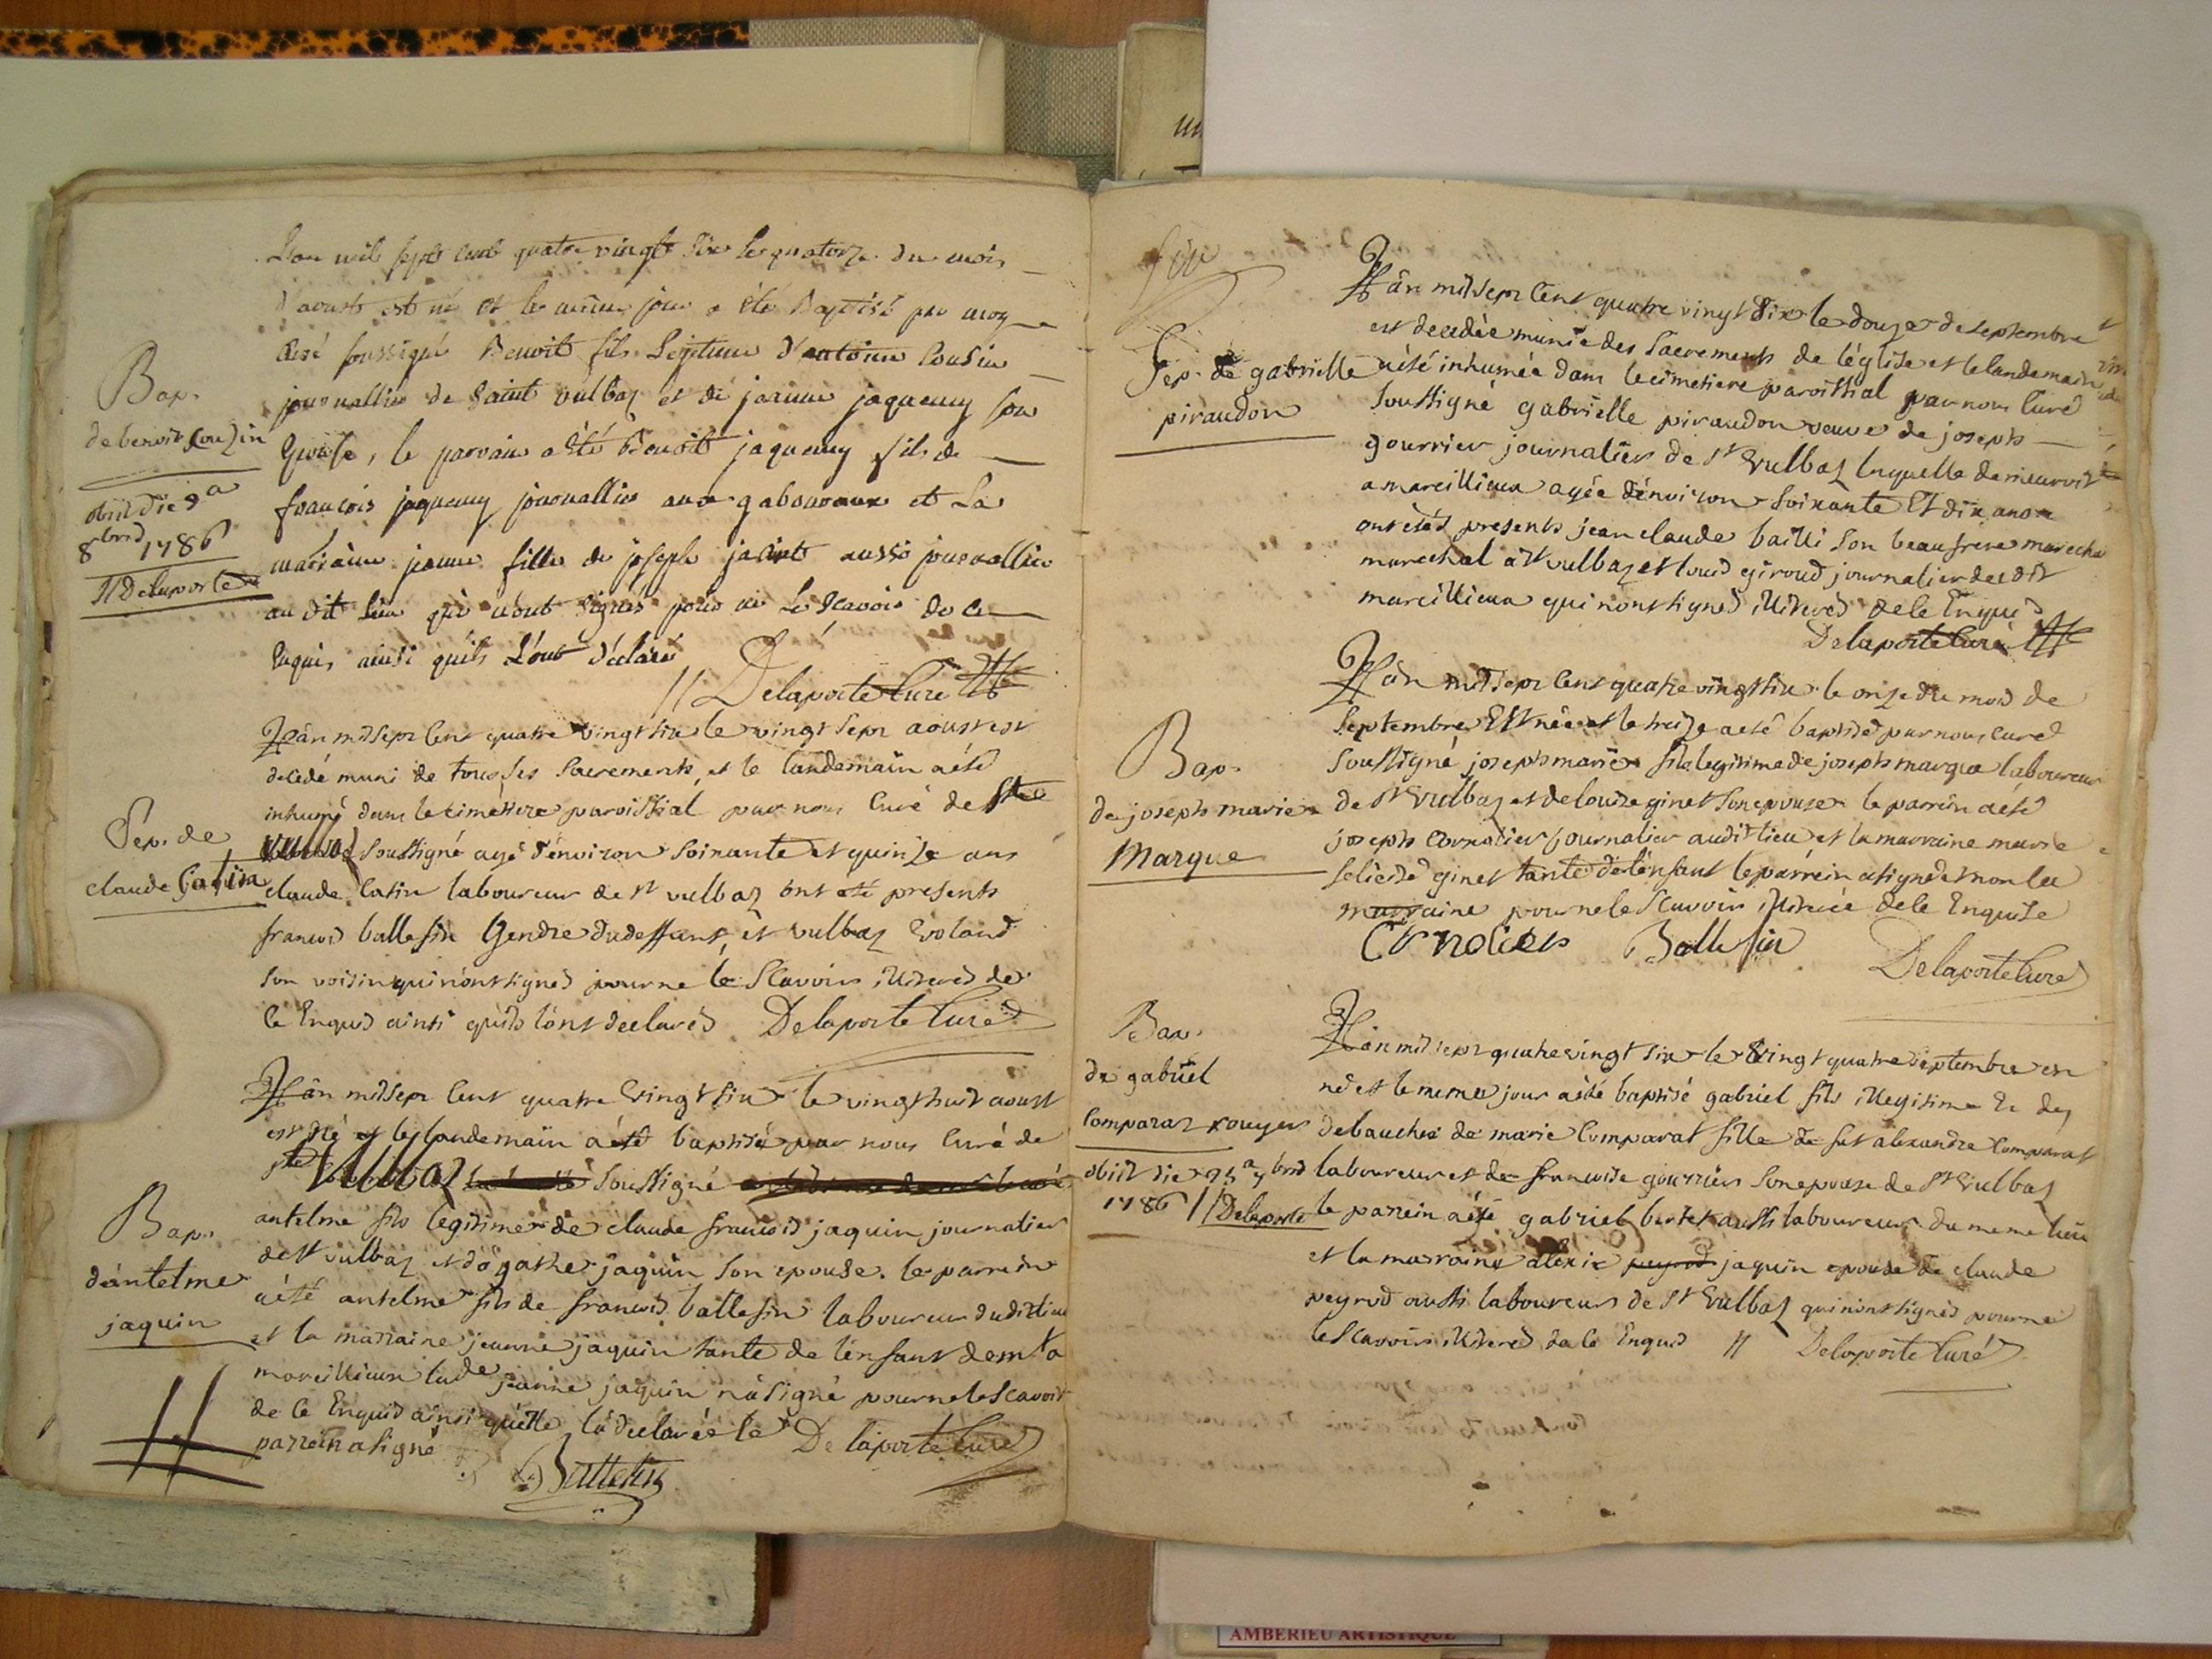 L'an mil sept cent quatre vingt six le quatorze du mois
d'aoust est né et le même jour a été Baptisé par moy
Curé soussigné Benoit fils Legitime d'antoine Cousin
journallier de Saint vulbaz et de jeanne jaquemy son
Epouse, le parrain a Eté Benoit jaquemy fils de
francois jaquemy journallier aux gabouraux et La
marraine jeanne fille de joseph jacint aussi journallier
au dit lieu qui n'ont signés pour ne Le Scavoir de ce
Enquis ainsi qu'ils L'ont déclaré
// Delaporte Curé
Bap.
de benoit Couzin
obiit die 9a
8bris 1786
// Delaporte
L'an mil sept Cent quatre vingt six le vingt sept aoust est
decedé muni de tous ses Sacrements et le landemain a été
inhumé dans le cimetiere paroissial par nous Curé de St
vulbaz soussigné agé d'environ soixante et quinze ans
claude Catin laboureur de st vulbaz ont eté presents
francois ballesin Gendre du deffunt, et vulbaz Evoland
son voisin qui n'ont signés pour ne le Scavoir illiterés de
ce Enquis ainsi qu'ils l'ont declarés Delaporte Curé
Sép. de
claude Catin
L'an mil sept Cent quatre Vingt six le vingt huit aoust
est né et le landemain a été baptisé par nous Curé de
st Vulbaz soussigné
antelme fils legitime de claude francois jaquin journalier
de st vulbaz et d'agathe jaquin son epouse. le parrein
a été antelme fils de francois ballesin laboureur dudit lieu
et la marraine jeanne jaquin tante de l'enfant demt a
marcillieux lade jeanne jaquin n'a signé pour ne le Scavoir
de ce Enquis ainsi qu'elle l'a declarée le
parrein a signé
Ballesin
Delaporte Curé
Bap.
d'antelme
jaquin
L'an mil sept Cent quatre vingt six le douze de septembre
est decedée munie des Sacrements de l'église et le landemain
a été inhumée dans le cimetiere paroissial par nous Curé
Soussigné gabrielle piraudon veuve de joseph
gourrier journalier de st Vulbaz laquelle demeuroit
a marcillieux agée d'environ Soixante Et dix ans
ont étés presents jean claude bailli son beau frere
marechal a st vulbaz et louis giroud journalier dudit
marcillieux qui n'ont signés illiterés de ce Enquis
Delaporte Curé
Sep. de gabrielle
piraudon
L'an mil sept Cent quatre vingt six le onze du mois de
septembre Est né et le treize a eté baptisé par nous curé
Soussigné joseph marie fils legitime de joseph marque laboureur
de st Vulbaz et de louise ginet son epouse le parrin a été
joseph Cornolier journalier audit lieu et la marraine marie
felicité ginet tante de l'enfant le parrein a signé et non la
marraine pour ne le Scavoir illiterée de ce Enquise
Cornolier Ballesin
Delaporte Curé
Bap.
de joseph marie
Marque
L'an mil sept quatre vingt six le Vingt quatre septembre est
né et le meme jour a été baptisé gabriel fils illegitime Et de
debauche de marie Comparat fille de fut alexandre Comparat
laboureur et de francoise gourrier son epouse de st Vulbaz
le parrein a été gabriel berlet aussi laboureur du meme lieu
et la marraine alexie jaquin epouse de claude
peyrod aussi laboureur de st Vulbaz qui n'ont signés pour ne
le Scavoir illiterés de ce Enquis // Delaporte Curé
Bap.
de gabriel
Comparat
obiit die 25a 7bris
1786 // Delaporte
AMBERIEU ARTISTIQUE